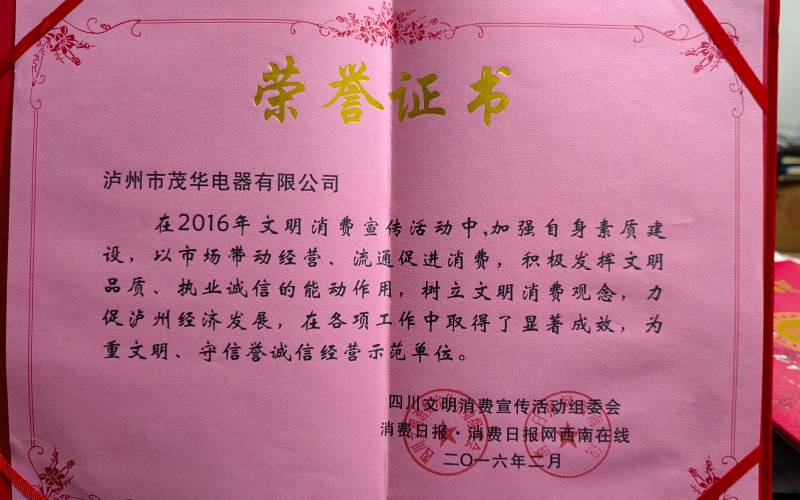 荣誉证书
泸州市茂华电器有限公司
在2016年文明消费宣传活动中,加强自身素质建
设，以市场带动经营、流通促进消费，积极发挥文明
品质、执业诚信的能动作用，树立文明消费观念，力
促泸州经济发展，在各项工作中取得了显著成效，为
重文明、守信誉诚信经营示范单位。
四川文明消费宣传活动组委会
消费日报·消费日报网西南在线
二〇一六年二月